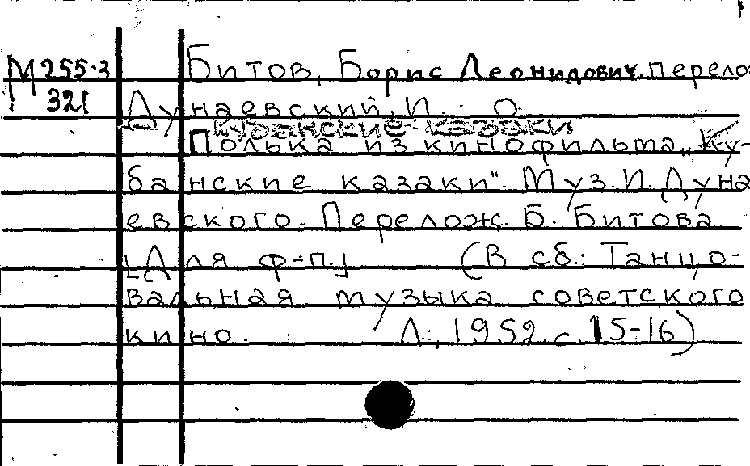 М 255-3 Битов, Борис Леонидович. перело
321 Дунаевский, И. О.
Кубанские казаки
Полька из кинофильма „Ку-
банские казаки". Муз. И. Дуна
евского. Перелож. Б. Битова
[Для ф-п.] (В сб.: Танцо-
вальная музыка советского
кино. Л., 1952. с. 15-16)